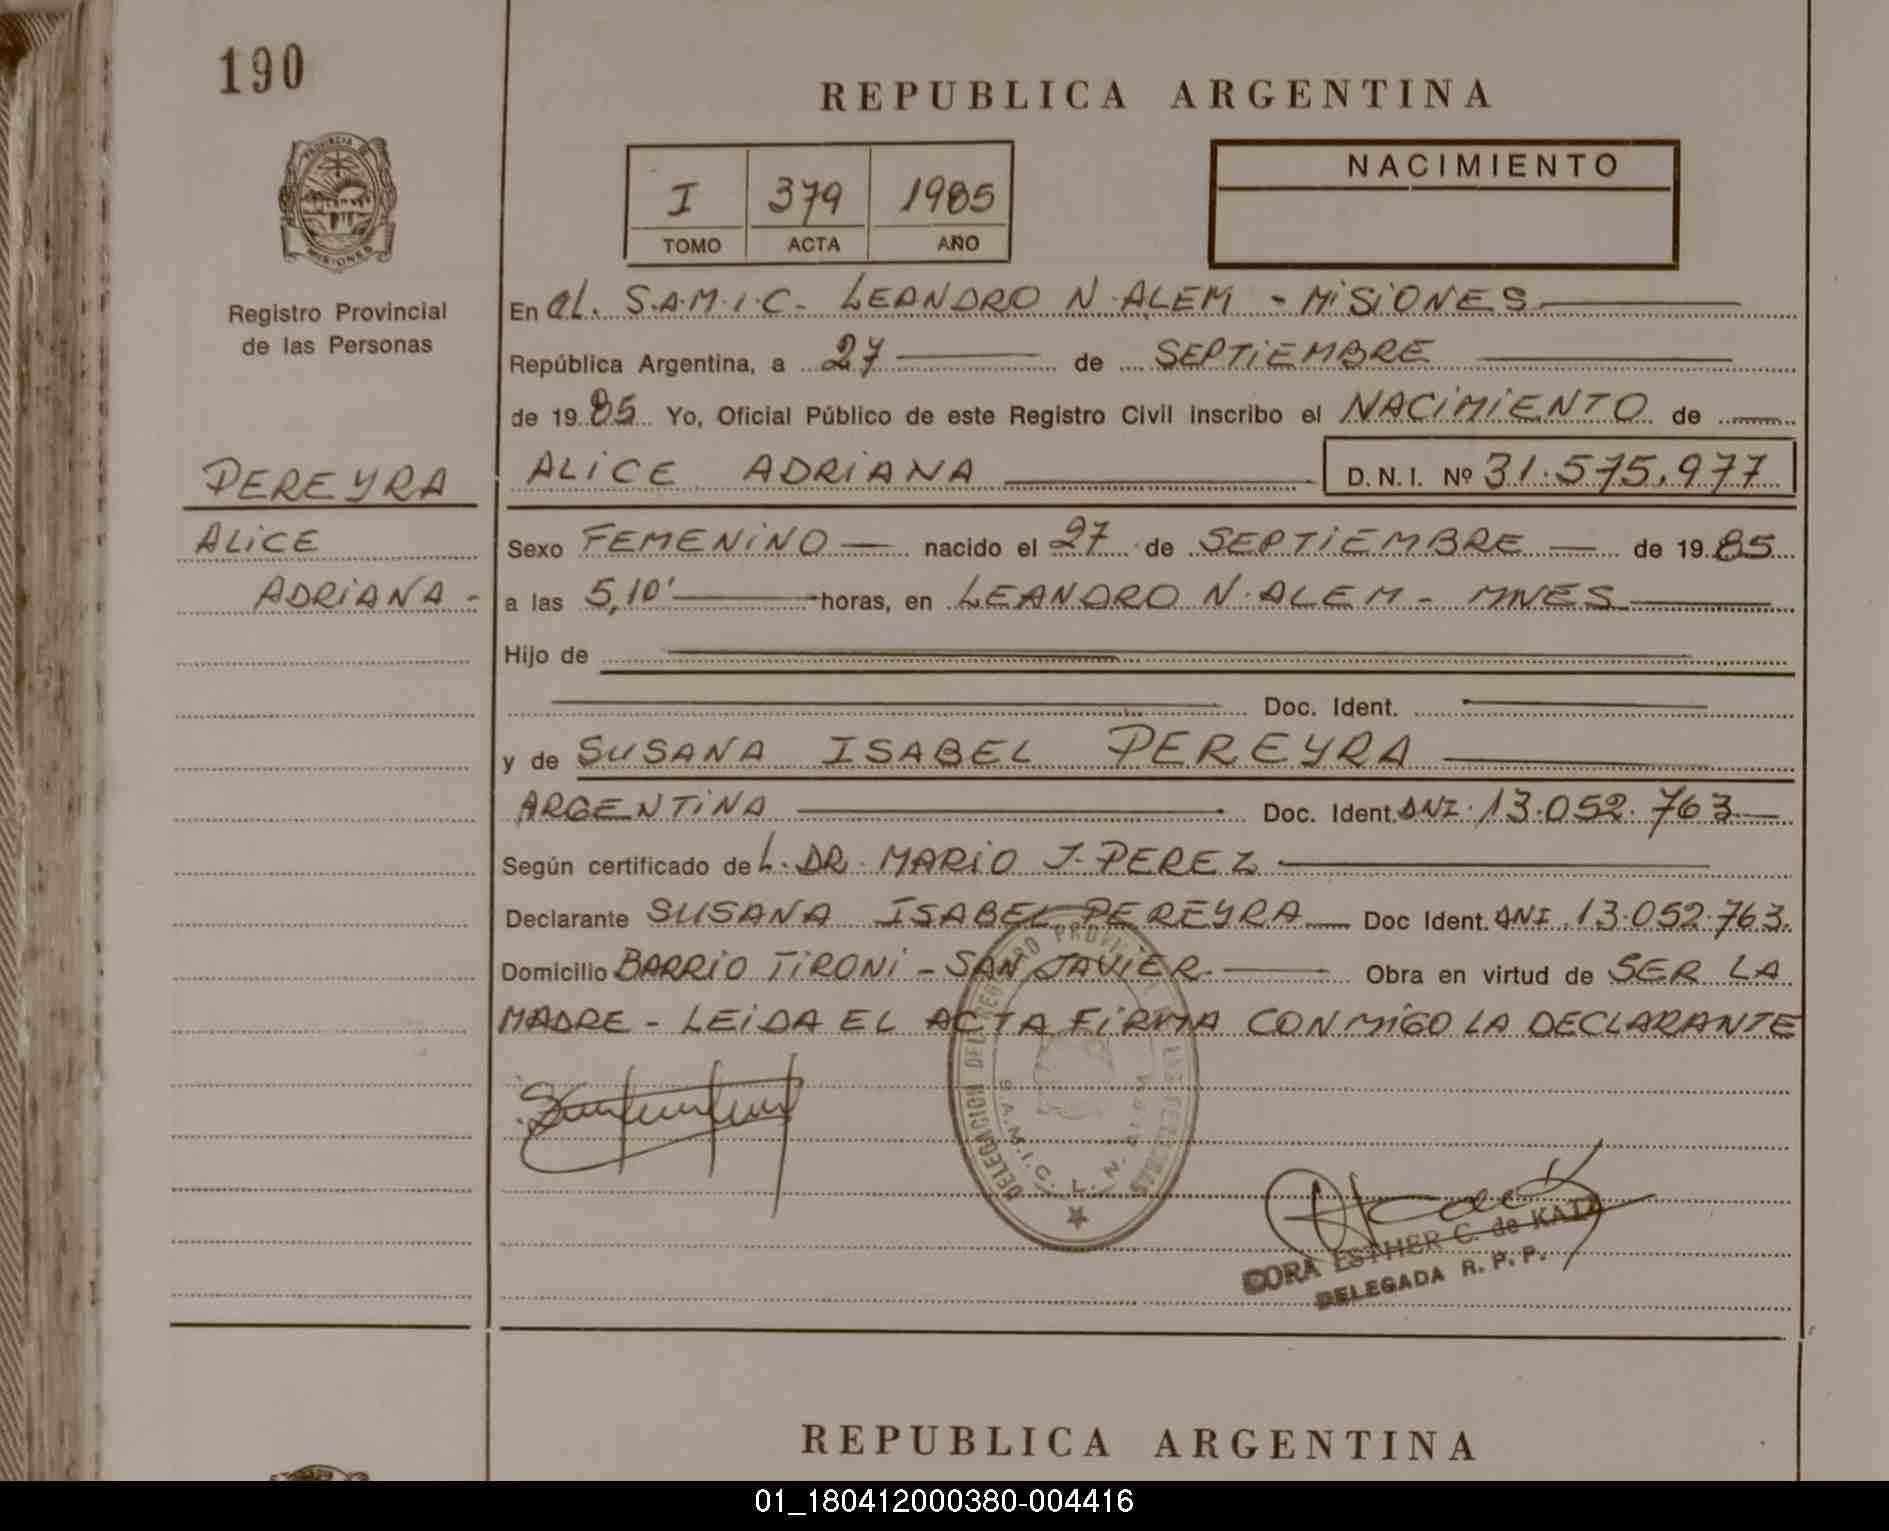 190
REPUBLICA ARGENTINA
PROVINCIA DE
MISIONES
Registro Provincial
de las Personas
I 379 1985
TOMO ACTA AÑO
NACIMIENTO
En el S.A.M.I.C. LEANDRO N. ALEM - MISIONES
República Argentina, a 27 de SEPTIEMBRE
de 1985 Yo, Oficial Público de este Registro Civil inscribo el NACIMIENTO de
ALICE ADRIANA D.N.I. Nº 31.575.977
PEREYRA
ALICE
ADRIANA -
Sexo FEMENINO nacido el 27 de SEPTIEMBRE de 1985
a las 5,10' horas, en LEANDRO N. ALEM - MNES
Hijo de
Doc. Ident.
y de SUSANA ISABEL PEREYRA
ARGENTINA Doc. Ident. DNI. 13.052.763
Según certificado del. DR. MARIO J. PEREZ
Declarante SUSANA ISABEL PEREYRA Doc Ident. DNI. 13.052.763.
Domicilio BARRIO TIRONI - SAN JAVIER Obra en virtud de SER LA
MADRE - LEIDA EL ACTA FIRMA CONMIGO LA DECLARANTE
DELEGACION DEL REGISTRO PROVINCIAL DE LAS PERSONAS
S.A.M.I.C. L. N.
CORA ESTHER C. de KATZ
DELEGADA R. P. P.
REPUBLICA ARGENTINA
01_180412000380-004416